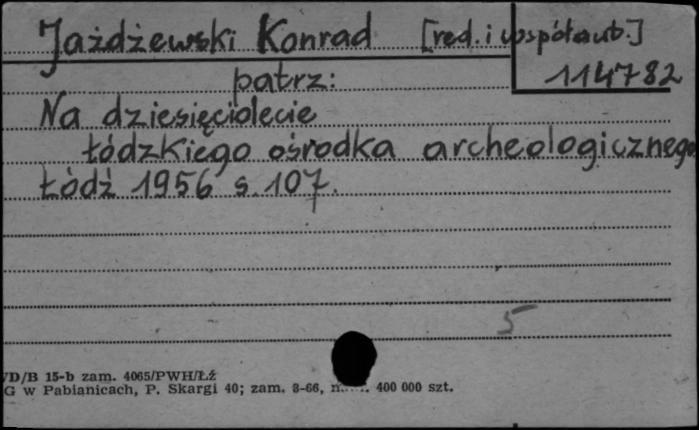 Jażdżewski Konrad [red. i współaut.]
114782
patrz:
Na dziesięciolecie
łódzkiego ośrodka archeologicznego
Łódź 1956 s. 107.
5
D/B 15-b zam. 4065/PWH/Łź
G w Pabianicach, P. Skargi 40; zam. 3-66, 400 000 szt.